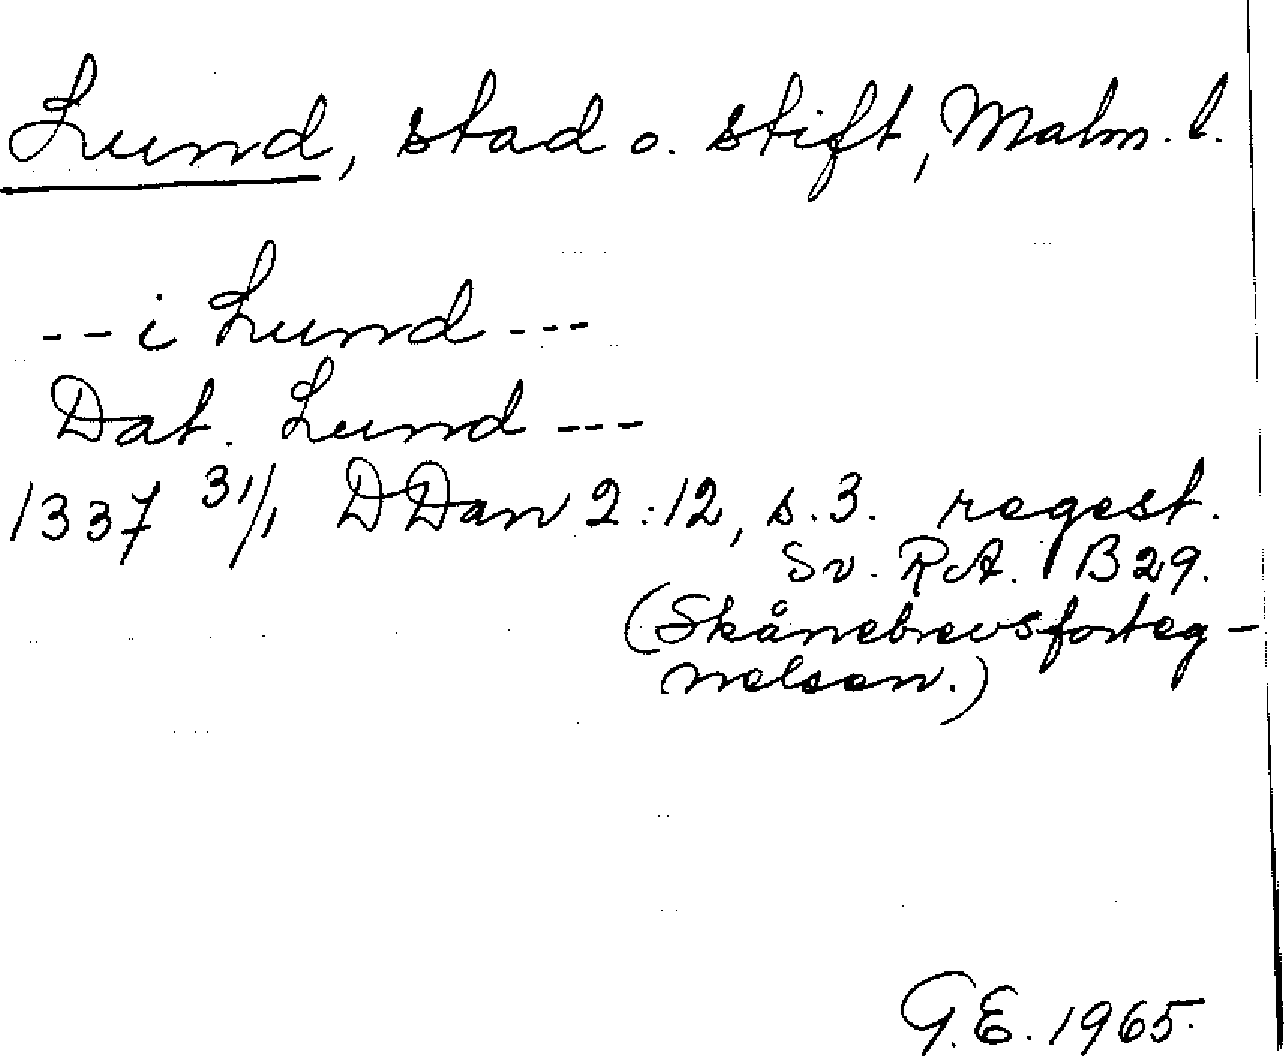 Lund, stad o. stift, Malm. l.
-- i Lund ---
Dat. Lund ---
1337 31/1 DDan 2:12, s. 3. regest.
Sv. RA. B 29.
(Skånebrevsforteg-
nelsen.)
G.E. 1965.